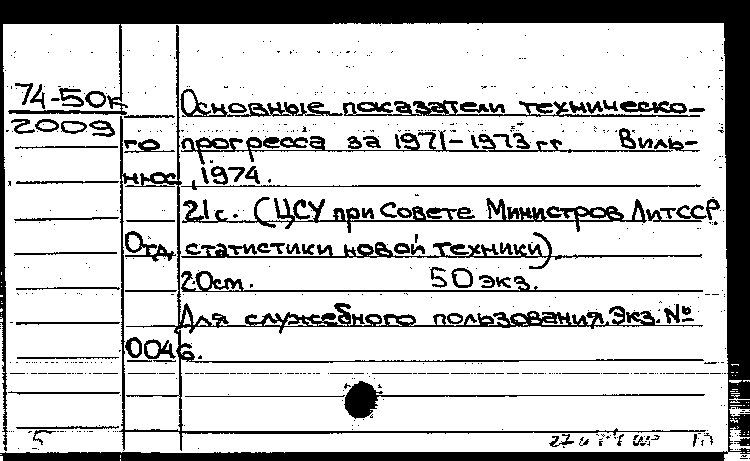 74-50к
2009
Основные показатели техническо-
го прогресса за 1971-1973 гг. Виль-
нюс, 1974.
21с. (ЦСУ при Совете Министров ЛитССР
Отд. статистики новой техники).
20см. 50 экз.
Для служебного пользования. Экз. №
0046.
5